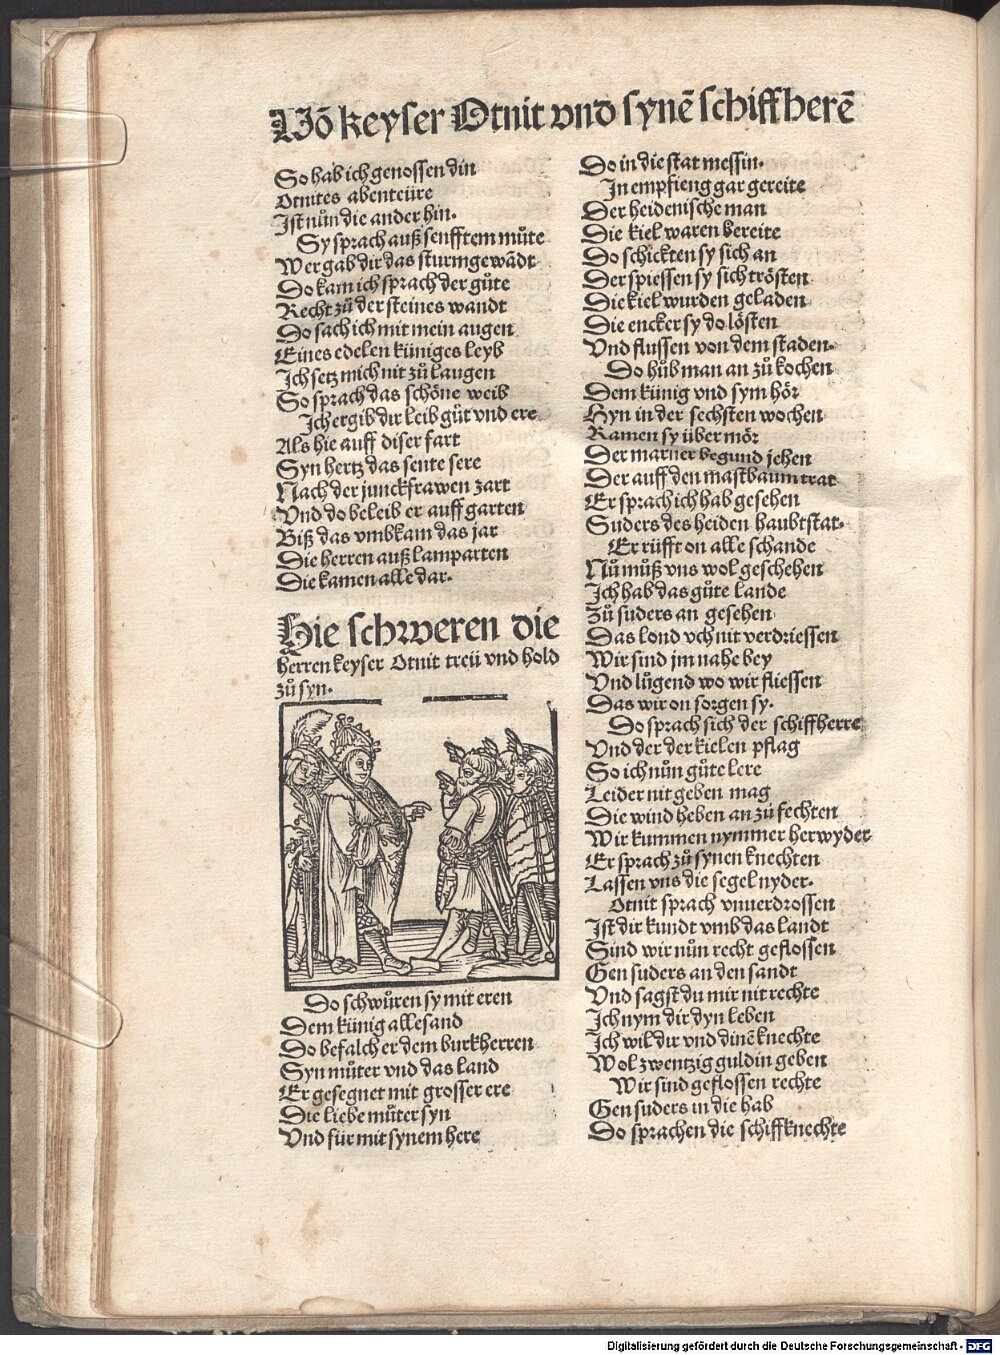 Võ keyser Otnit vnd synẽ schiffherẽ
So hab ich genossen din
Otnites abenteüre
Ist nůn die ander hin.
Sy sprach auß senfftem můte
Wer gab dir das sturmgewãdt
Do kam ich sprach der gůte
Recht zů der steines wandt
Do sach ich mit mein augen
Eines edelen küniges leyb
Ich setz mich nit zů laugen
So sprach das schöne weib
Ich ergib dir leib gůt vnd ere
Als hie auff diser fart
Syn hertz das sente sere
Nach der junckfrawen zart
Vnd do beleib er auff garten
Biß das vmbkam das jar
Die herren auß lamparten
Die kamen alle dar.
Hie schweren die
herren keyser Otnit treü vnd hold
zů syn.
Do schwůren sy mit eren
Dem künig allesand
Do befalch er dem burkherren
Syn můter vnd das land
Er gesegnet mit grosser ere
Die liebe můter syn
Vnd für mit synem here
Do in die stat messin.
In empfieng gar gereite
Der heidenische man
Die kiel waren bereite
Do schickten sy sich an
Der spiessen sy sich trösten
Die kiel wurden geladen
Die encker sy do lösten
Vnd flussen von dem staden.
Do hůb man an zů kochen
Dem künig vnd sym hör
Hyn in der sechsten wochen
Kamen sy über mör
Der marner begund jehen
Der auff den mastbaum trat
Er sprach ich hab gesehen
Suders des heiden haubtstat.
Er růfft on alle schande
Nů můß vns wol geschehen
Ich hab das gůte lande
Zů suders an gesehen
Das lond vch nit verdriessen
Wir sind jm nahe bey
Vnd lůgend wo wir fliessen
Das wir on sorgen sy.
Do sprach sich der schiffherre
Vnd der der kielen pflag
So ich nůn gůte lere
Leider nit geben mag
Die wind heben an zů fechten
Wir kummen nymmer herwyder
Er sprach zů synen knechten
Lassen vns die segel nyder.
Otnit sprach vnuerdrossen
Ist dir kundt vmb das landt
Sind wir nůn recht geflossen
Gen suders an den sandt
Vnd sagst du mir nit rechte
Ich nym dir dyn leben
Ich wil dir vnd dinẽ knechte
Wol zwentzig guldin geben
Wir sind geflossen rechte
Gen suders in die hab
Do sprachen die schiffknechte
Digitalisierung gefördert durch die Deutsche Forschungsgemeinschaft - DFG